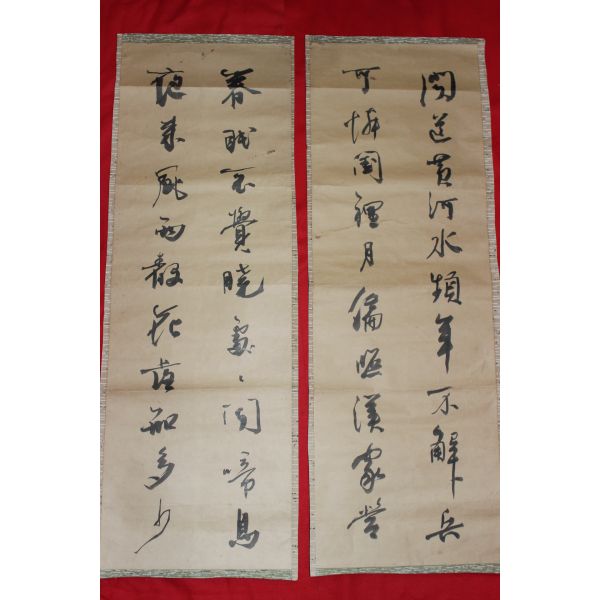 聞道黄河水頻年不解兵
可憐閨裡月偏照漢家營
春眠不覺曉處々聞啼鳥
夜来風雨聲花落知多少